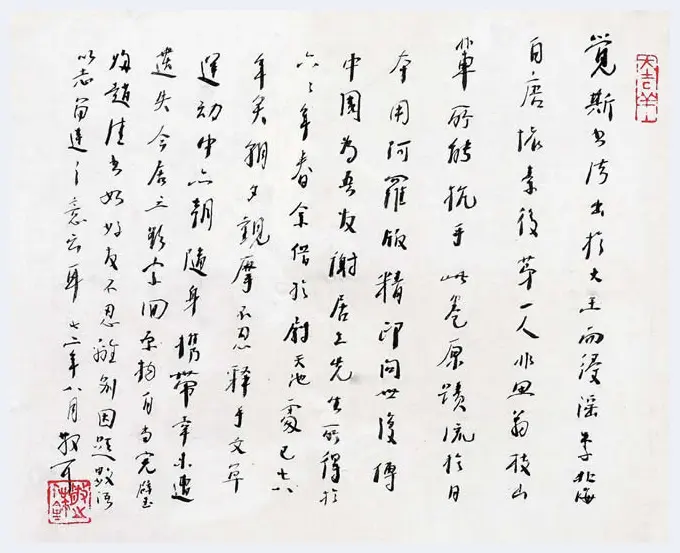 覺斯書法出於大王而浸淫李北海
自唐懷素後第一人非思翁枝山
輩所能抗手此卷原蹟流於日
本用阿羅版精印問世後傳
中國為吾友謝居三先生所得於
六年春余借於尉天池處已七八
年矣朝夕觀摩不忍釋手文革
運動中亦朝隨身攜帶幸未遭
遺失今居三欲索回原物自當完璧
歸趙法書如好友不忍離別因題數語
以志留連之意云耳 七二年八月 散耳
大吉羊